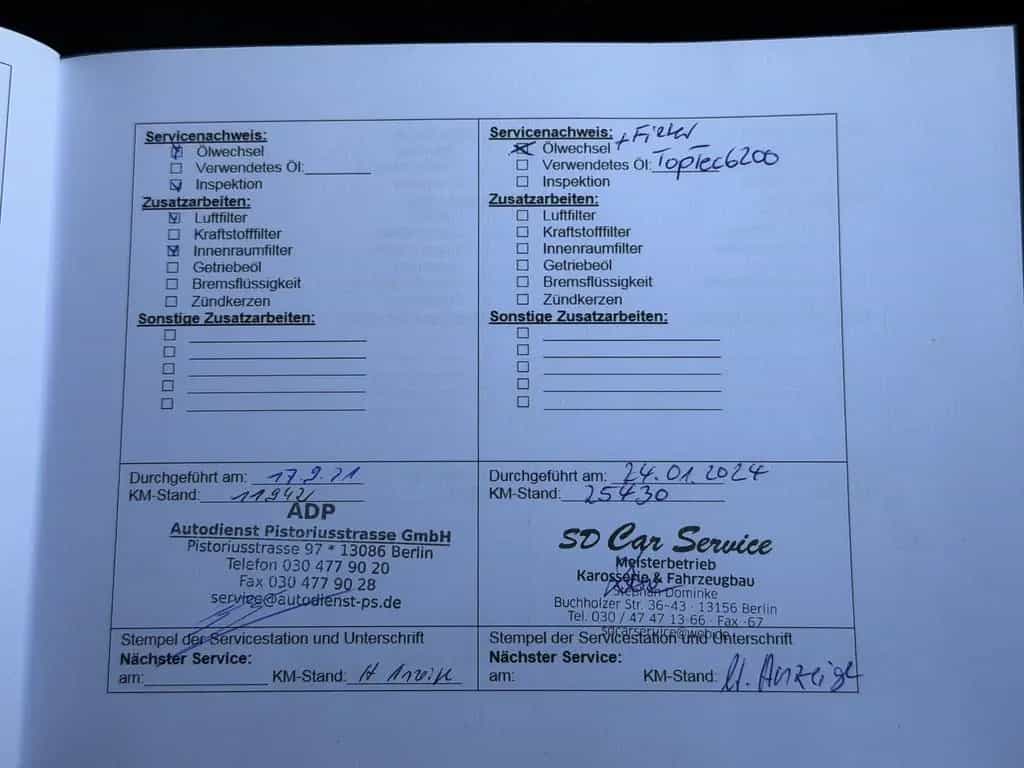 Servicenachweis:
Ölwechsel
Verwendetes Öl:
Inspektion
Zusatzarbeiten:
Luftfilter
Kraftstofffilter
Innenraumfilter
Getriebeöl
Bremsflüssigkeit
Zündkerzen
Sonstige Zusatzarbeiten:
Durchgeführt am: 17.9.21
KM-Stand: 11942
ADP
Autodienst Pistoriusstrasse GmbH
Pistoriusstrasse 97 * 13086 Berlin
Telefon 030 477 90 20
Fax 030 477 90 28
service@autodienst-ps.de
Stempel der Servicestation und Unterschrift
Nächster Service:
am: KM-Stand:
Servicenachweis:
Ölwechsel + Filter
Verwendetes Öl: TopTec6200
Inspektion
Zusatzarbeiten:
Luftfilter
Kraftstofffilter
Innenraumfilter
Getriebeöl
Bremsflüssigkeit
Zündkerzen
Sonstige Zusatzarbeiten:
Durchgeführt am: 24.01.2024
KM-Stand: 25430
SD Car Service
Meisterbetrieb
Karosserie & Fahrzeugbau
Dominke
Buchholzer Str. 36-43 · 13156 Berlin
Tel. 030 / 47 47 13 66 · Fax -67
sdcarservice@web.de
Stempel der Servicestation und Unterschrift
Nächster Service:
am: KM-Stand: lt. Anzeige